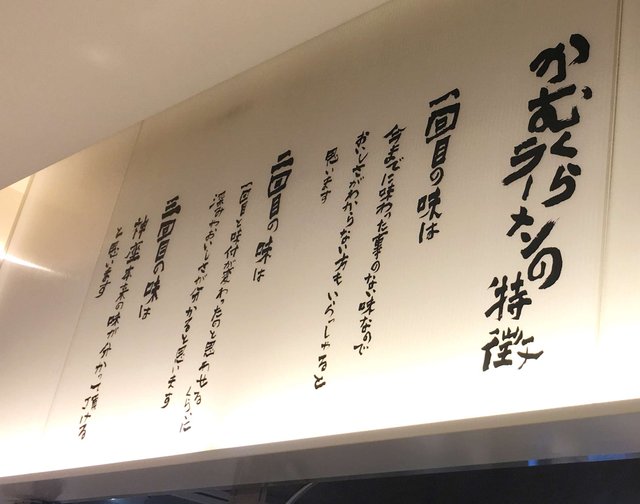 かむくらラーメンの特徴
一回目の味は
今までに味わった事のない味なので
おいしさがわからない方もいらっしゃると
思います
二回目の味は
一回目と味付が変わったのと思わせるくらいに
深いおいしさが分かると思います
三回目の味は
神座本来の味が分かって頂ける
と思います